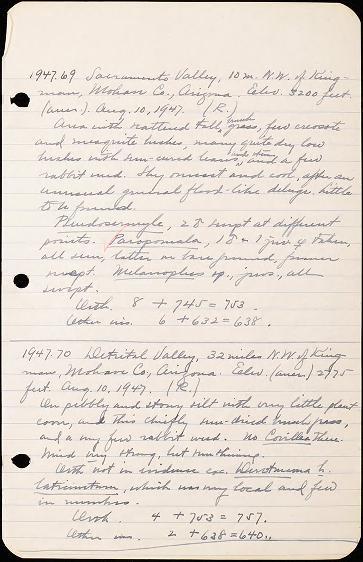 1947.69 Sacramento Valley, 10 m. N.W. of King-
man, Mohave Co., Arizona. Elev. 3200 feet.
(aner.). Aug. 10, 1947. (R.)
Area with scattered tall grass, much few creosote
and mesquite bushes, many quite dry low
bushes with sun-cured leaves, and stems and a few
rabbit weed. Sky overcast and cool, after an
unusual general flood-like deluge. Little
to be found.
Pseudosermyle, 2♂ swept at different
points. Paropomala, 1♂ + 1 juv. ♀ taken,
all seen, latter on bare ground, former
swept. Melanoplus sp., juvs., all
swept.
Orth. 8 + 745 = 753.
Other ins. 6 + 632 = 638.
1947.70 Detrital Valley, 32 miles N.W. of King-
man, Mohave Co., Arizona. Elev. (aner.) 2975
feet. Aug. 10, 1947. (R.)
On pebbly and stony silt with very little plant
cover, and this chiefly sun-dried bunch grass,
and a very few rabbit weed. No Covillea there.
Wind very strong, but sun shining.
Orth. not in evidence exc. Derotmema h.
laticinctum, which was very local and few
in numbers.
Orth. 4 + 753 = 757.
Other ins. 2 + 638 = 640.